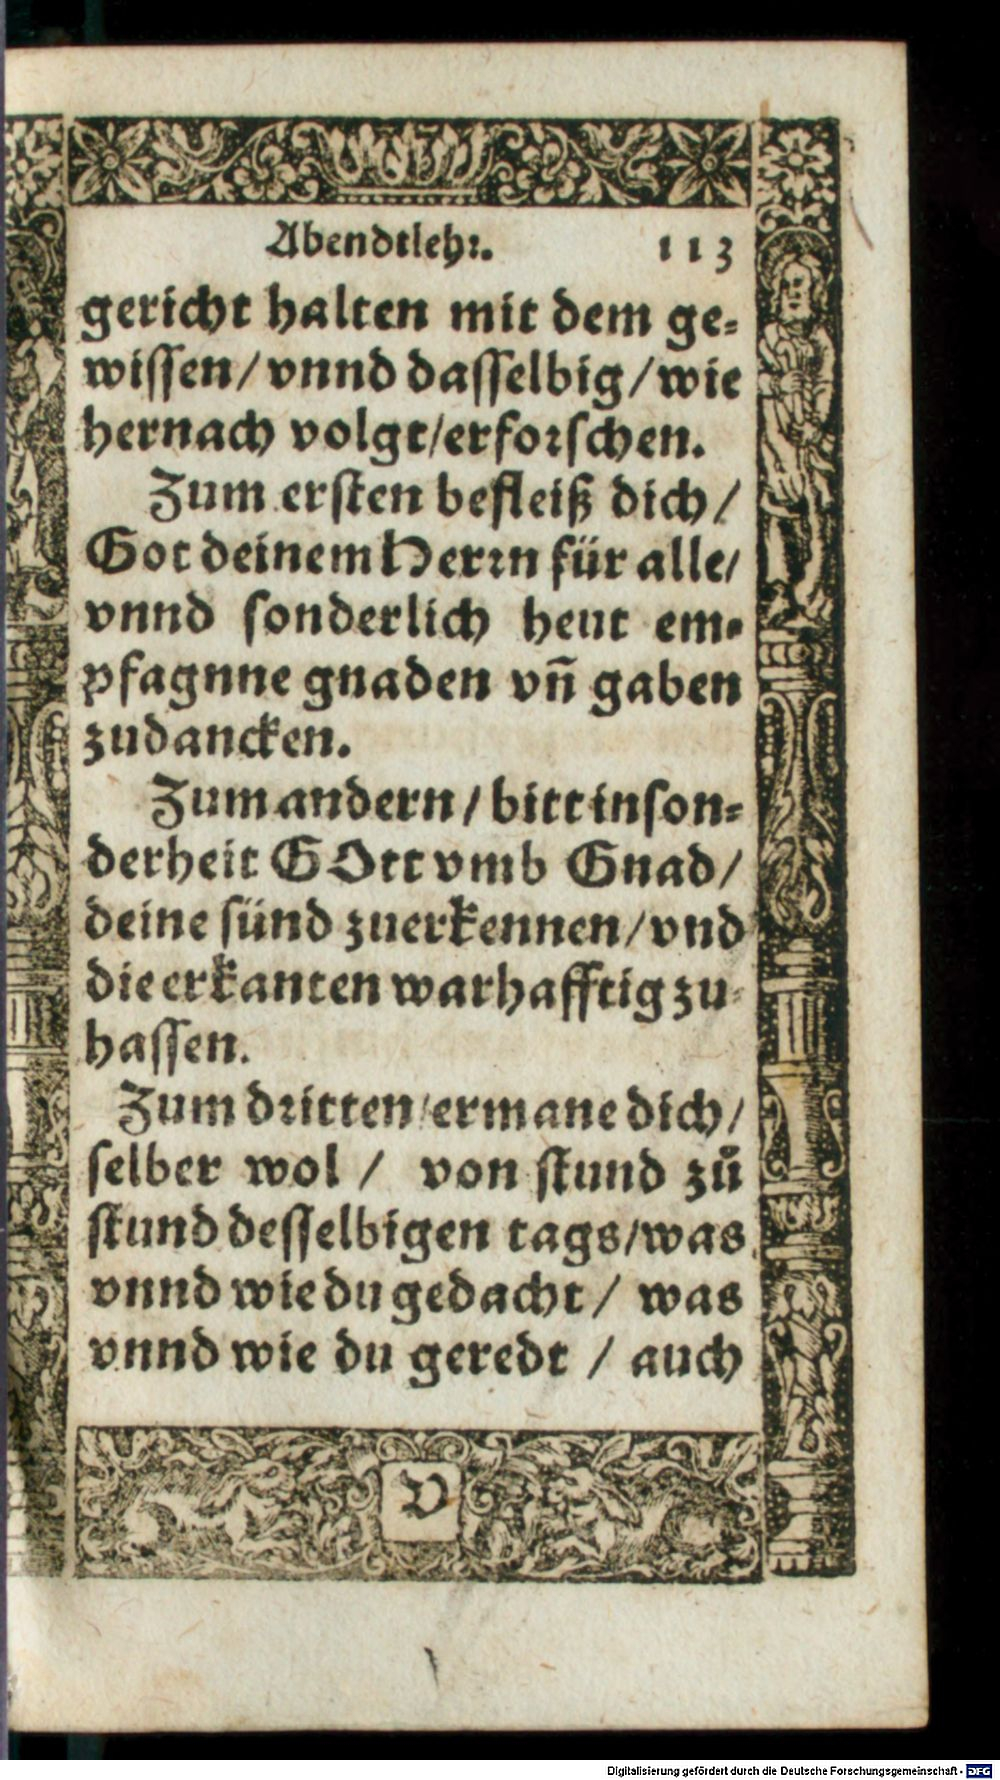 Abendtlehr. 113
gericht halten mit dem ge-
wissen/ vnnd dasselbig/ wie
hernach volgt/erforschen.
Zum ersten befleiß dich/
Got deinem Herrn für alle/
vnnd sonderlich heut em-
pfagnne gnaden vñ gaben
zudancken.
Zum andern/ bitt inson-
derheit GOtt vmb Gnad/
deine sünd zuerkennen/ vnd
die erkanten warhafftig zu-
hassen.
Zum dritten/ermane dich/
selber wol/ von stund zů
stund desselbigen tags/was
vnnd wie du gedacht/ was
vnnd wie du geredt / auch
V
Digitalisierung gefördert durch die Deutsche Forschungsgemeinschaft - DFG